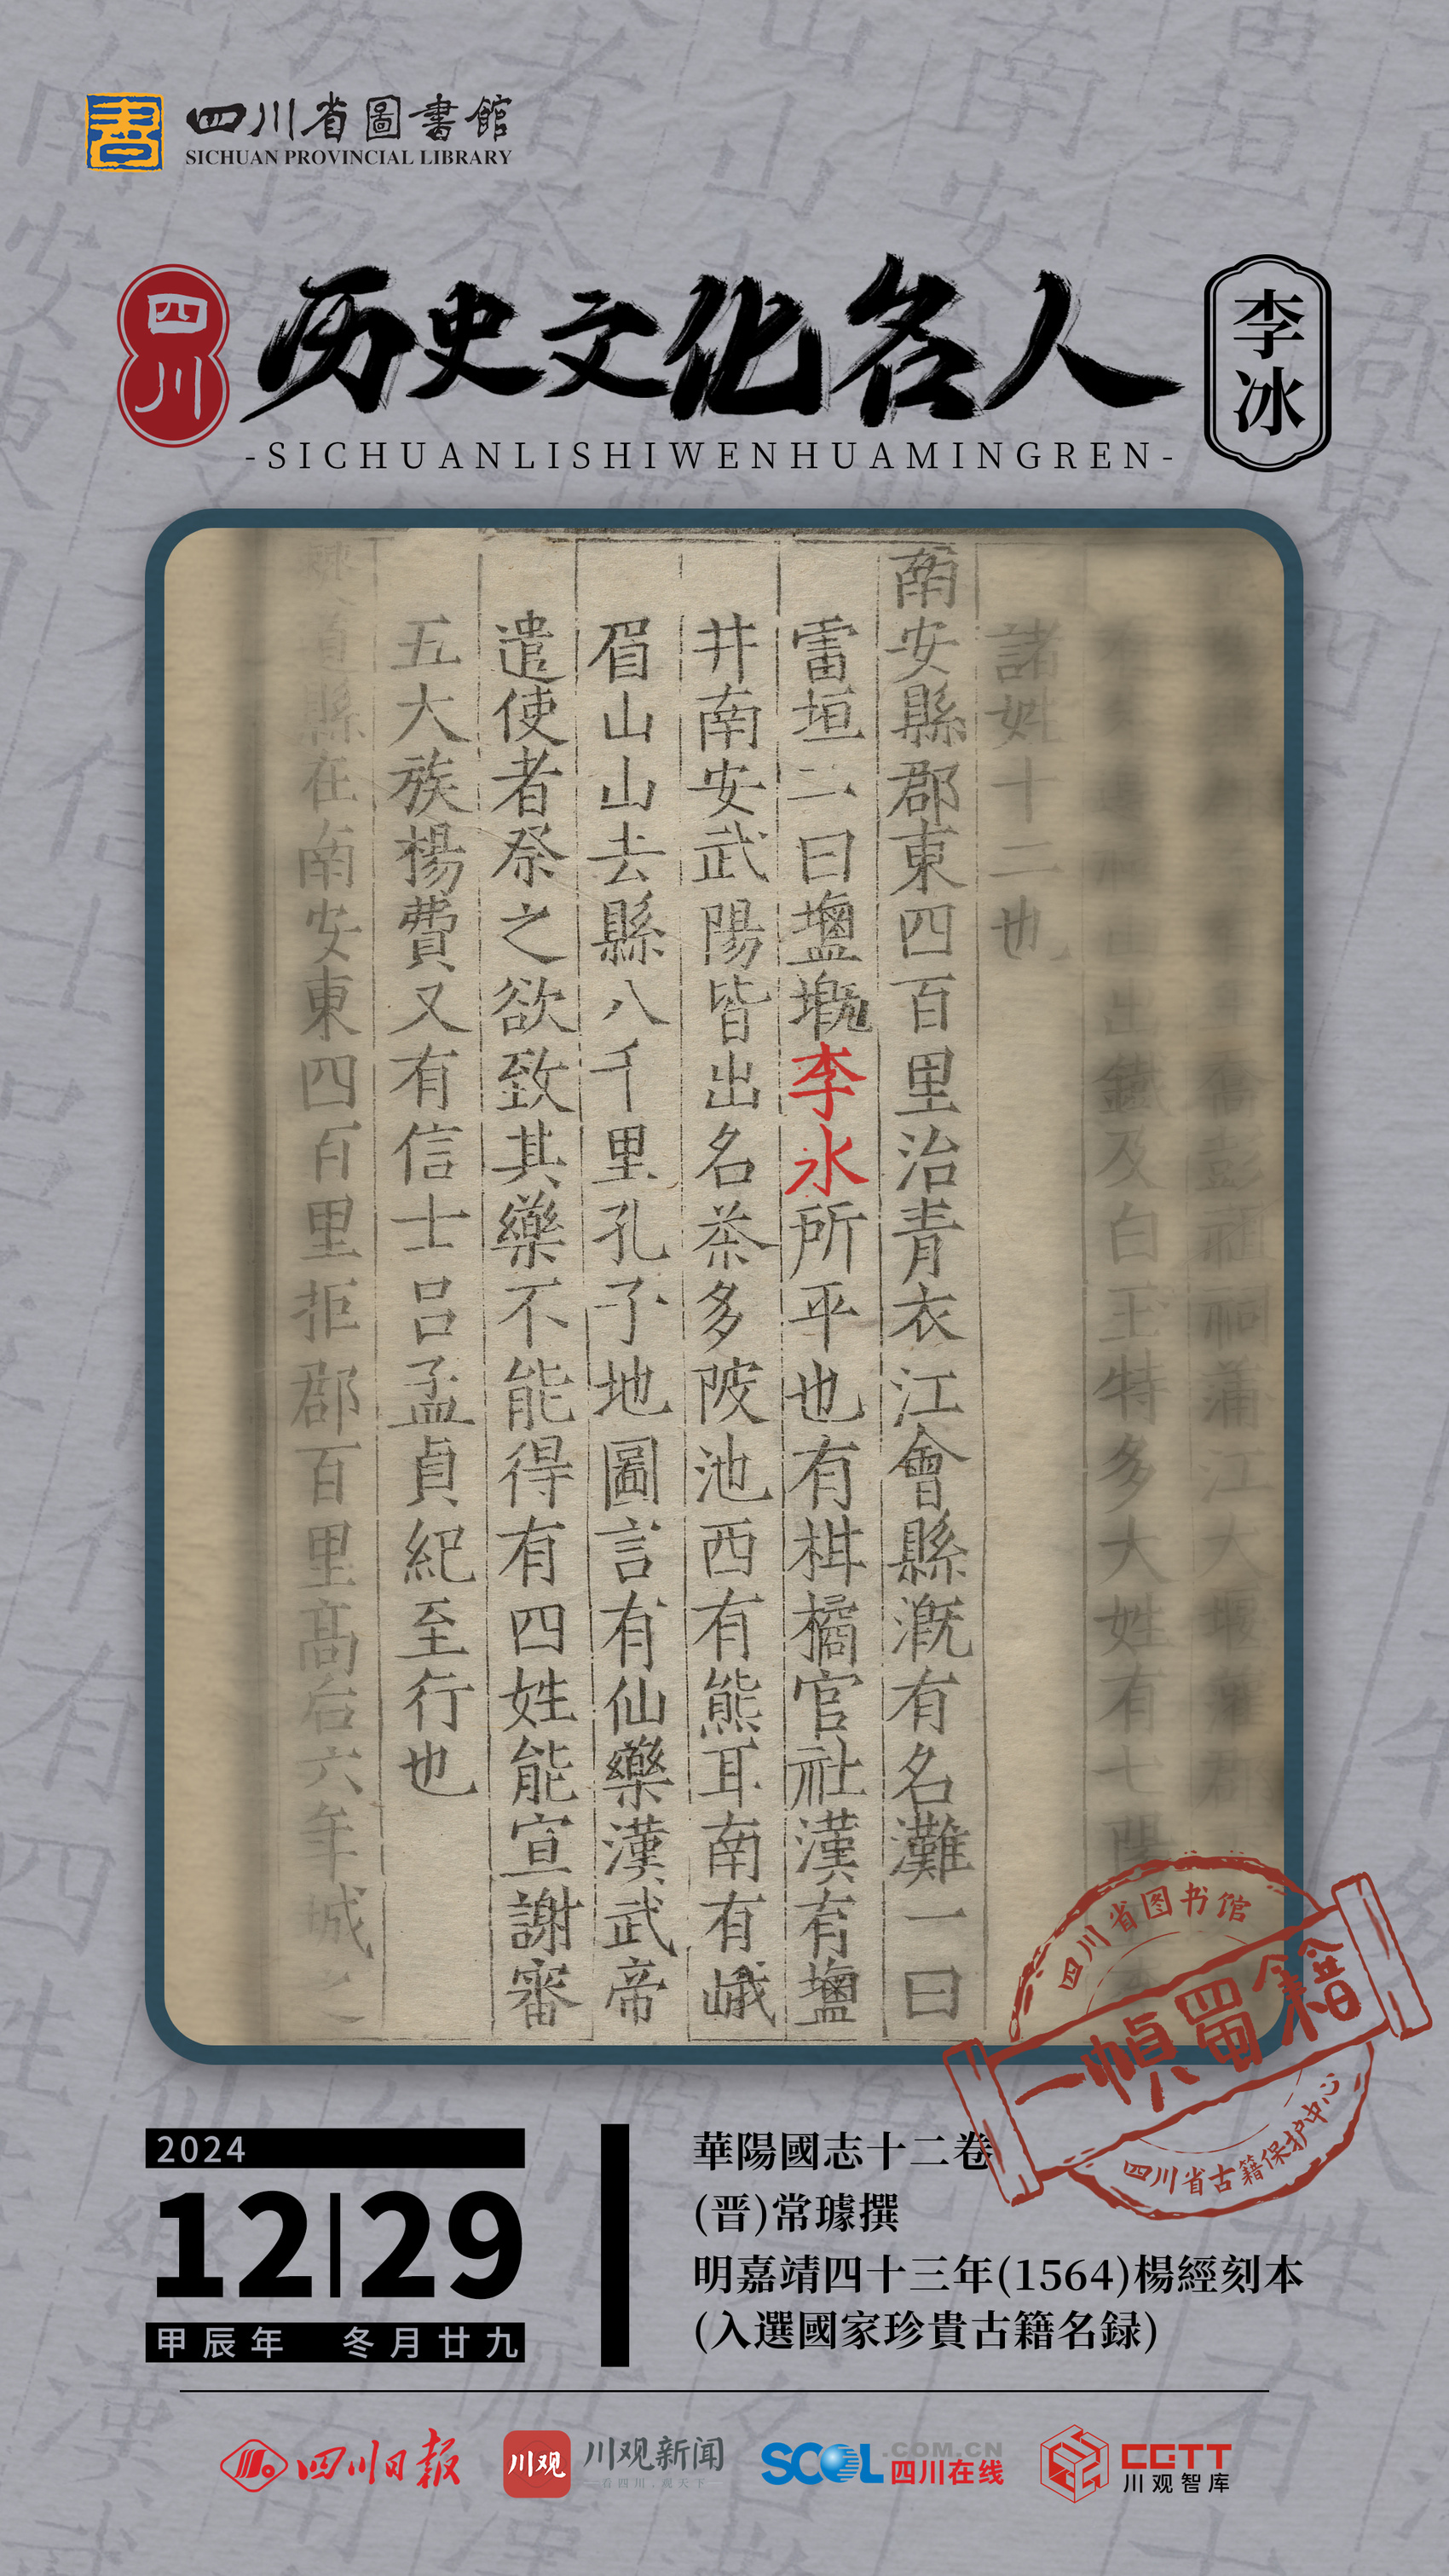 四川省圖書館
SICHUAN PROVINCIAL LIBRARY
四川
历史文化名人
李冰
-SICHUANLISHIWENHUAMINGREN-
出鐵及白玉特多大姓有七陽
諸姓十二也
南安縣郡東四百里治青衣江會縣溉有名灘一曰
雷垣二曰鹽溉李冰所平也有柑橘官社漢有鹽
井南安武陽皆出名茶多陂池西有熊耳南有峨
眉山山去縣八千里孔子地圖言有仙藥漢武帝
遣使者祭之欲致其藥不能得有四姓能宣謝審
五大族楊費又有信士呂孟貞紀至行也
道縣在南安東四百里拒郡百里高后六年城之
四川省图书馆
一幀蜀籍
四川省古籍保护中心
2024
12|29
甲辰年 冬月廿九
華陽國志十二卷
(晋)常璩撰
明嘉靖四十三年(1564)楊經刻本
(入選國家珍貴古籍名録)
四川日报
川观
川观新闻
看四川,观天下
SCOL.COM.CN
四川在线
CGTT
川观智库